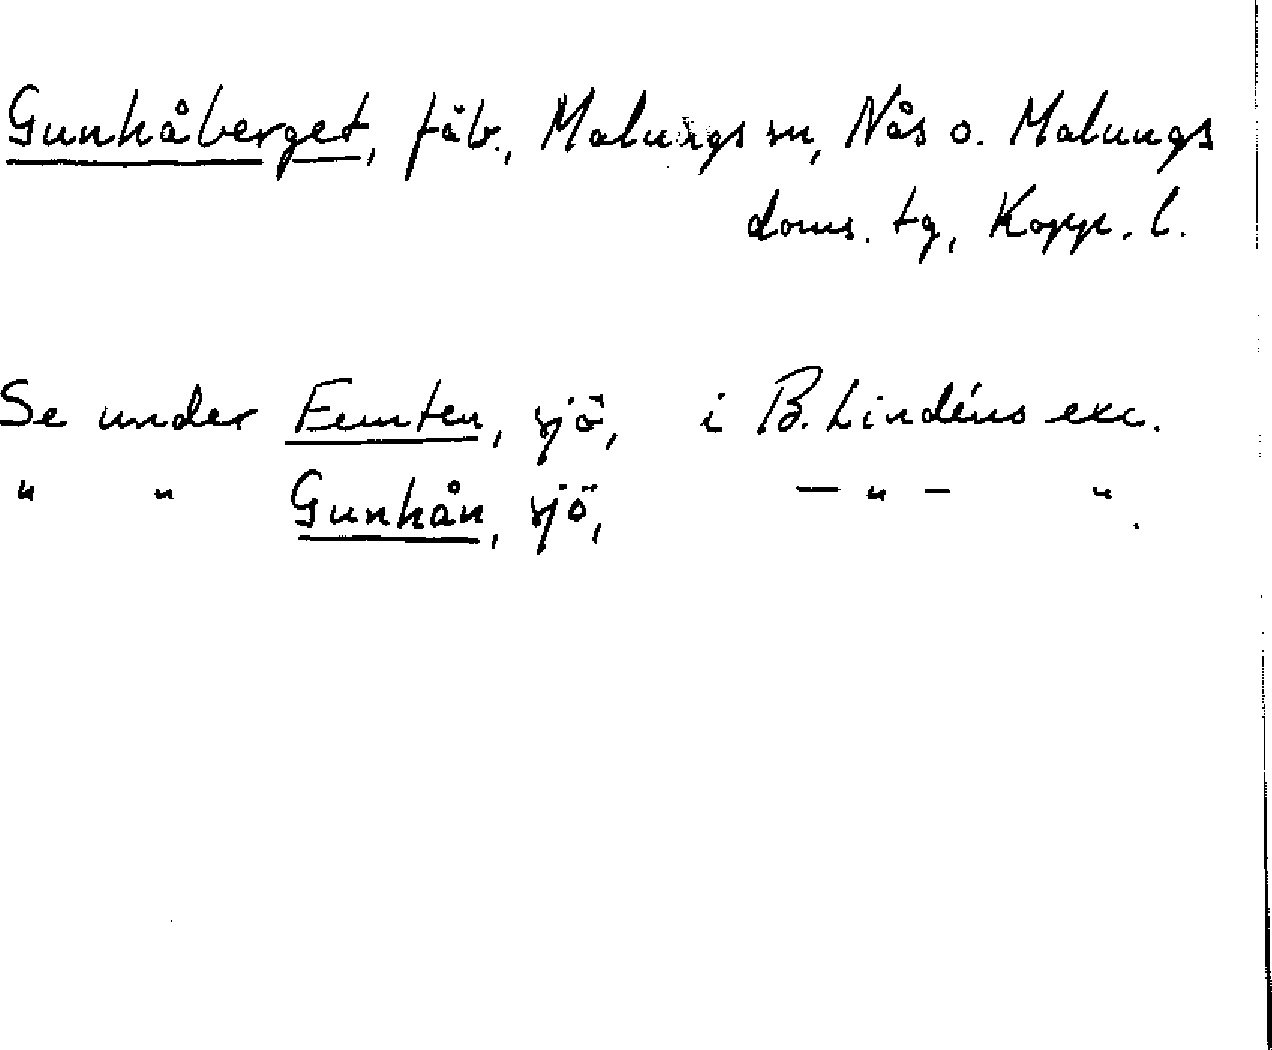 Gunhåberget, fäb., Malungs sn, Nås o. Malungs
doms. tg, Kopp. l.
Se under Femten, sjö, i B. Lindéns exc.
" " Gunhån, sjö, — " — " .